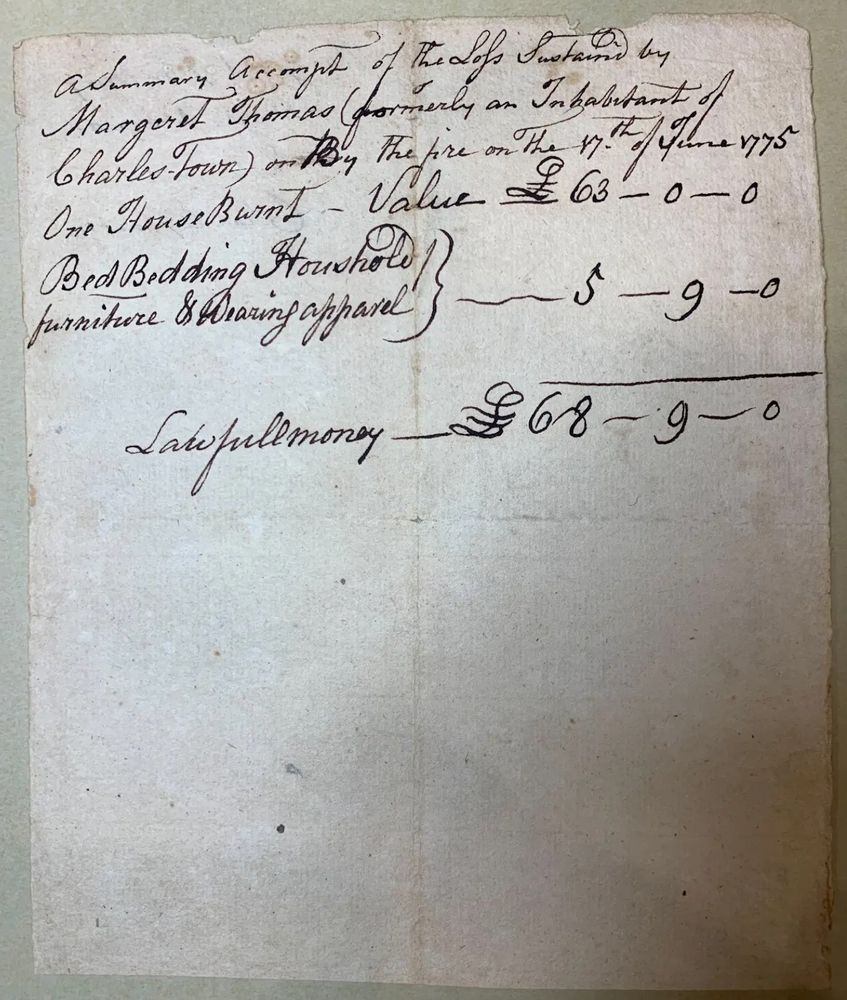 A Summary Accompt of the Loss Sustaind by
Margeret Thomas (formerly an Inhabitant of
Charles-Town) on By the fire on the 17.th of June 1775
One House Burnt – Value £ 63 – 0 – 0
Bed Bedding Houshold
furniture & Wearing apparel } — 5 – 9 – 0
Lawfull money — £ 68 – 9 – 0